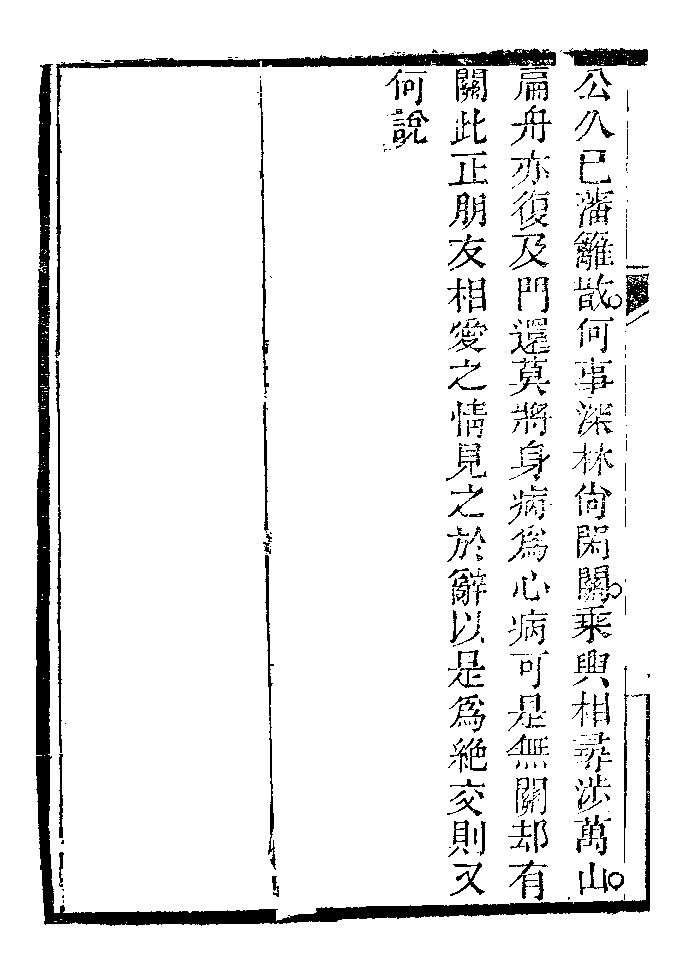 公久已藩籬散。何事深林尙閉關。乘興相尋涉萬山。
扁舟亦復及門還莫將身病爲心病可是無關却有
關此正朋友相愛之情見之於辭以是爲絶交則又
何說